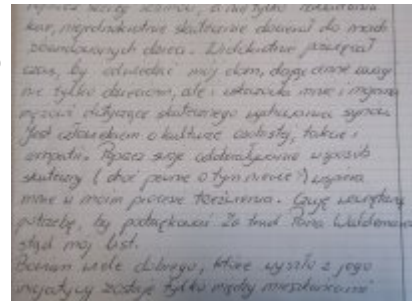 kar, niejednokrotnie skutecznie docierał do moich
czas, by odwiedzić mój dom, dając cenne uwagi
nie tylko dzieciom, ale i wskazówki mnie i mojemu
mężowi dotyczące skutecznego wychowania synów.
Jest człowiekiem o kulturze osobistej, takcie i
empatii. Poprzez swoje oddziaływanie w sposób
skuteczny (choć pewnie o tym nie wie!) wspiera
mnie w moim procesie trzeźwienia. Czuję wewnętrzną
potrzebę, by podziękować za trud Pana Waldemara
stąd mój list.
Bowiem wiele dobrego, które wyszło z jego
inicjatywy zostaje tylko między mieszkańcami